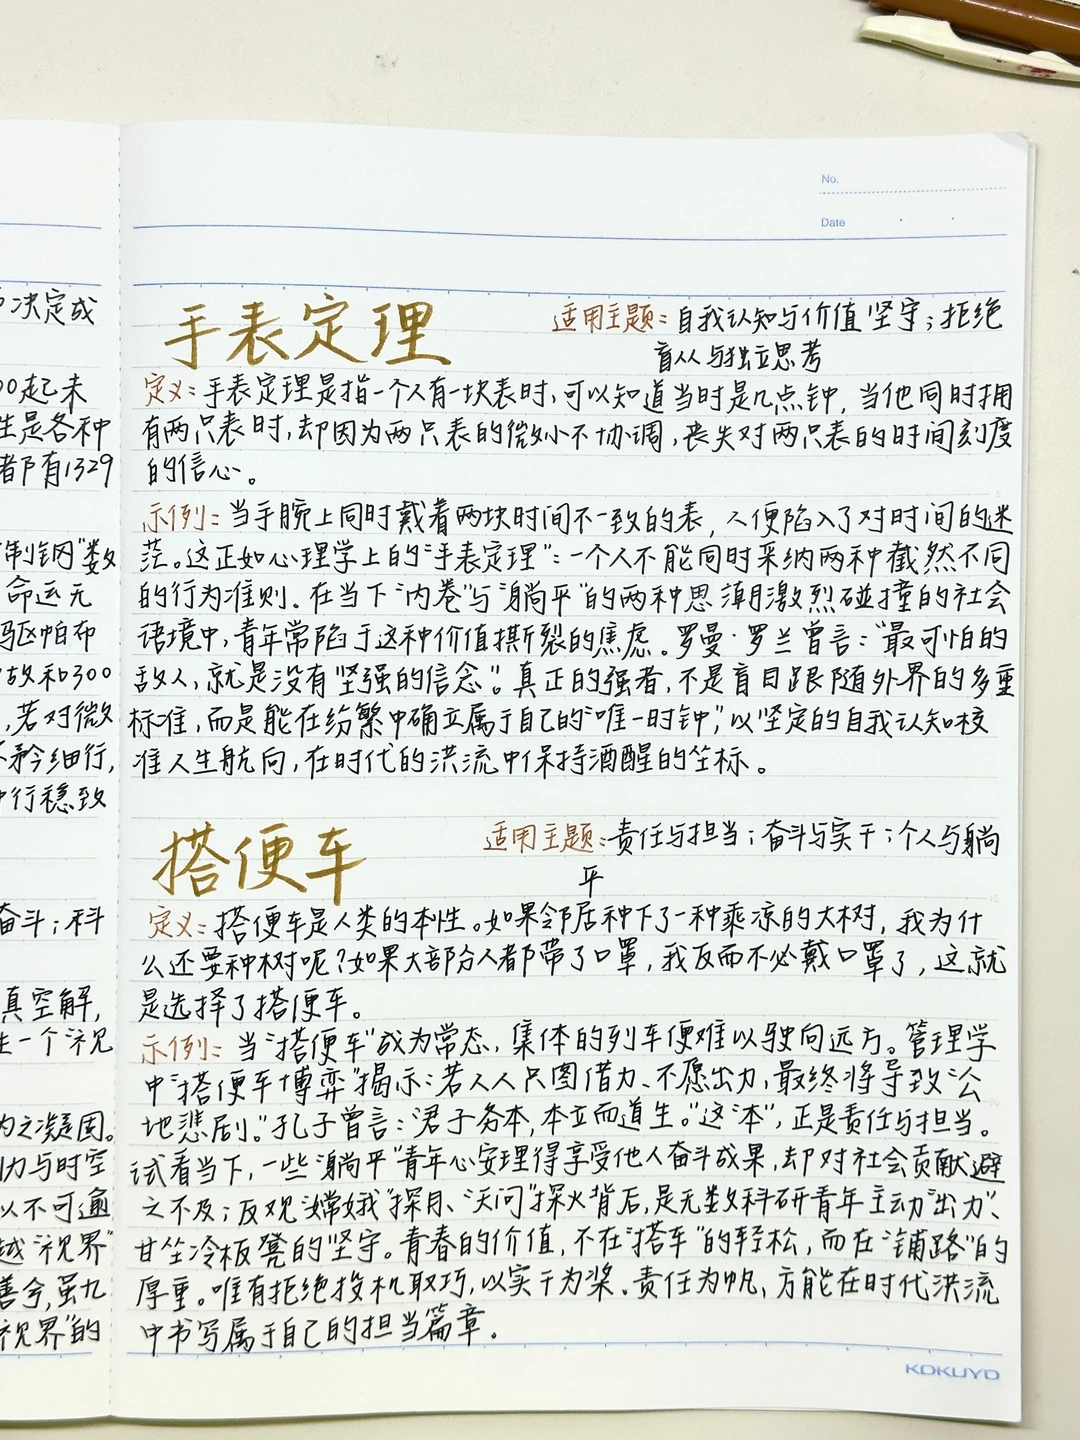 决定成
00起未
生是各种
都有1329
制钢"数
命运元
驱帕布
故和300
,若对微
矜细行,
行稳致
奋斗;科
真空解,
生一个"视
为之凝固。
力与时空
以不可逾
越"视界"
善兮,虽九
视界"的
No.
Date
手表定理
适用主题:自我认知与价值坚守;拒绝
盲从与独立思考
定义:手表定理是指一个人有一块表时,可以知道当时是几点钟,当他同时拥
有两只表时,却因为两只表的微小不协调,丧失对两只表的时间刻度
的信心。
示例:当手腕上同时戴着两块时间不一致的表,人便陷入了对时间的迷
茫。这正如心理学上的"手表定理":一个人不能同时采纳两种截然不同
的行为准则。在当下"内卷"与"躺平"的两种思潮激烈碰撞的社会
语境中,青年常陷于这种价值撕裂的焦虑。罗曼·罗兰曾言:"最可怕的
敌人,就是没有坚强的信念"。真正的强者,不是盲目跟随外界的多重
标准,而是能在纷繁中确立属于自己的"唯一时钟",以坚定的自我认知校
准人生航向,在时代的洪流中保持酒醒的坐标。
搭便车
适用主题:责任与担当;奋斗与实干;个人与躺
平
定义:搭便车是人类的本性。如果邻居种下了一种乘凉的大树,我为什
么还要种树呢?如果大部分人都带了口罩,我反而不必戴口罩了,这就
是选择了搭便车。
示例:当"搭便车"成为常态,集体的列车便难以驶向远方。管理学
中"搭便车博弈"揭示:若人人只图借力、不愿出力,最终将导致"公
地悲剧。"孔子曾言:"君子务本,本立而道生。"这"本",正是责任与担当。
试看当下,一些"躺平"青年心安理得享受他人奋斗成果,却对社会贡献避
之不及;反观"嫦娥"探月、"天问"探火背后,是无数科研青年主动"出力"、
甘坐冷板凳的坚守。青春的价值,不在"搭车"的轻松,而在"铺路"的
厚重。唯有拒绝投机取巧,以实干为桨、责任为帆,方能在时代洪流
中书写属于自己的担当篇章。
KOKUYO